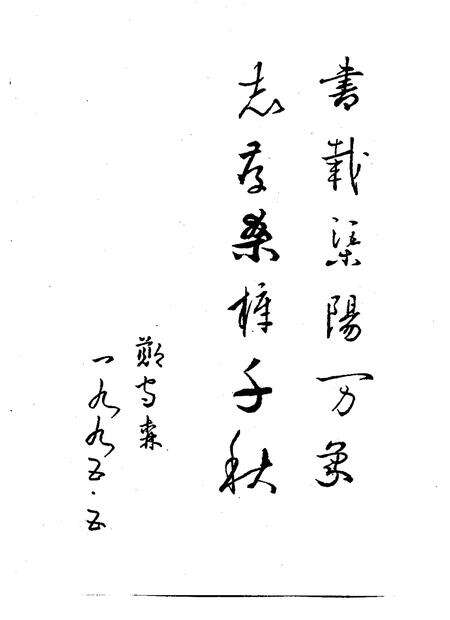 書載渠陽万象
志存桑梓千秋
鄭守森
一九九五·五